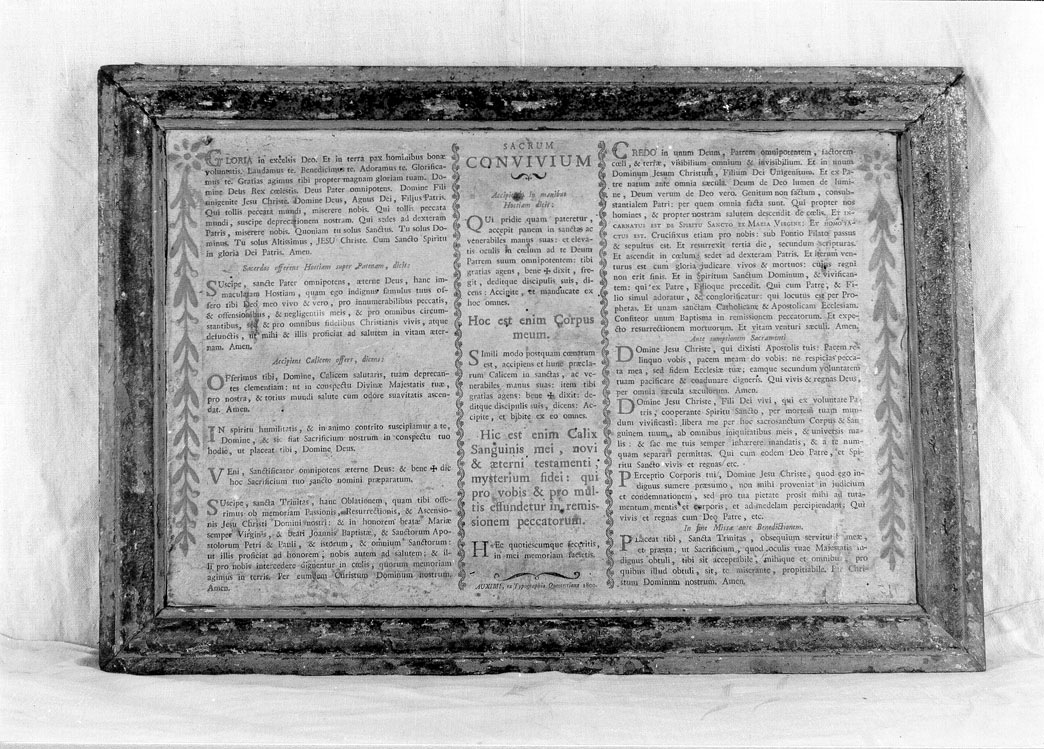 GLORIA in excelsis Deo. Et in terra pax hominibus bonæ
voluntatis. Laudamus te. Benedicimus te. Adoramus te. Glorifica-
mus te. Gratias agimus tibi propter magnam gloriam tuam. Do-
mine Deus Rex cœlestis. Deus Pater omnipotens. Domine Fili
unigenite Jesu Christe. Domine Deus, Agnus Dei, Filius Patris.
Qui tollis peccata mundi, miserere nobis. Qui tollis peccata
mundi, suscipe deprecationem nostram. Qui sedes ad dexteram
Patris, miserere nobis. Quoniam tu solus Sanctus. Tu solus Do-
minus. Tu solus Altissimus, JESU Christe. Cum Sancto Spiritu
in gloria Dei Patris. Amen.
Sacerdos offerens Hostiam super Patenam, dicit:
SUscipe, sancte Pater omnipotens, æterne Deus, hanc im-
maculatam Hostiam, quam ego indignus famulus tuus of-
fero tibi Deo meo vivo & vero, pro innumerabilibus peccatis,
& offensionibus, & negligentiis meis, & pro omnibus circum-
stantibus, sed & pro omnibus fidelibus Christianis vivis, atque
defunctis, ut mihi & illis proficiat ad salutem in vitam æter-
nam. Amen.
Accipiens Calicem offert, dicens:
OFferimus tibi, Domine, Calicem salutaris, tuam deprecan-
tes clementiam: ut in conspectu Divinæ Majestatis tuæ,
pro nostra, & totius mundi salute cum odore suavitatis ascen-
dat. Amen.
IN spiritu humilitatis, & in animo contrito suscipiamur a te,
Domine, & sic fiat Sacrificium nostrum in conspectu tuo
hodie, ut placeat tibi, Domine Deus.
VEni, Sanctificator omnipotens æterne Deus: & bene ✠ dic
hoc Sacrificium tuo sancto nomini præparatum.
SUscipe, sancta Trinitas, hanc Oblationem, quam tibi offe-
rimus ob memoriam Passionis, Resurrectionis, & Ascensio-
nis Jesu Christi Domini nostri: & in honorem beatæ Mariæ
semper Virginis, & beati Joannis Baptistæ, & Sanctorum Apo-
stolorum Petri & Pauli, & istorum, & omnium Sanctorum:
ut illis proficiat ad honorem, nobis autem ad salutem; & il-
li pro nobis intercedere dignentur in cœlis, quorum memoriam
agimus in terris. Per eumdem Christum Dominum nostrum.
Amen.
SACRUM
CONVIVIUM
Accipiens in manibus
Hostiam dicit:
QUi pridie quam pateretur,
accepit panem in sanctas ac
venerabiles manus suas: et eleva-
tis oculis in cœlum ad te Deum
Patrem suum omnipotentem: tibi
gratias agens, bene ✠ dixit, fre-
git, deditque discipulis suis, di-
cens: Accipite, et manducate ex
hoc omnes.
Hoc est enim Corpus
meum.
SImili modo postquam cœnatum
est, accipiens et hunc præcla-
rum Calicem in sanctas, ac ve-
nerabiles manus suas: item tibi
gratias agens: bene ✠ dixit: de-
ditque discipulis suis, dicens: Ac-
cipite, et bibite ex eo omnes.
Hic est enim Calix
Sanguinis mei, novi
& æterni testamenti:
mysterium fidei: qui
pro vobis & pro mul-
tis effundetur in remis-
sionem peccatorum.
HÆc quotiescumque feceritis,
in mei memoriam facietis.
AUXIMI, ex Typographia Quercetiana 1800.
CREDO in unum Deum, Patrem omnipotentem, factorem
cœli, & terræ, visibilium omnium & invisibilium. Et in unum
Dominum Jesum Christum, Filium Dei Unigenitum. Et ex Pa-
tre natum ante omnia sæcula. Deum de Deo lumen de lumi-
ne, Deum verum de Deo vero. Genitum non factum, consub-
stantialem Patri: per quem omnia facta sunt. Qui propter nos
homines, & propter nostram salutem descendit de cœlis. ET IN-
CARNATUS EST DE SPIRITU SANCTO EX MARIA VIRGINE: ET HOMO FA-
CTUS EST. Crucifixus etiam pro nobis: sub Pontio Pilato passus
& sepultus est. Et resurrexit tertia die, secundum scripturas.
Et ascendit in cœlum: sedet ad dexteram Patris. Et iterum ven-
turus est cum gloria judicare vivos & mortuos: cujus regni
non erit finis. Et in Spiritum Sanctum Dominum, & vivifican-
tem: qui ex Patre, Filioque procedit. Qui cum Patre, & Fi-
lio simul adoratur, & conglorificatur: qui locutus est per Pro-
phetas. Et unam sanctam Catholicam & Apostolicam Ecclesiam.
Confiteor unum Baptisma in remissionem peccatorum. Et expe-
cto resurrectionem mortuorum. Et vitam venturi sæculi. Amen.
Ante sumptionem Sacramenti
DOmine Jesu Christe, qui dixisti Apostolis tuis: Pacem re-
linquo vobis, pacem meam do vobis: ne respicias pecca-
ta mea, sed fidem Ecclesiæ tuæ; eamque secundum voluntatem
tuam pacificare & coadunare digneris. Qui vivis & regnas Deus,
per omnia sæcula sæculorum. Amen.
DOmine Jesu Christe, Fili Dei vivi, qui ex voluntate Pa-
tris, cooperante Spiritu Sancto, per mortem tuam mun-
dum vivificasti: libera me per hoc sacrosanctum Corpus & San-
guinem tuum, ab omnibus iniquitatibus meis, & universis ma-
lis: & fac me tuis semper inhærere mandatis, & a te num-
quam separari permittas. Qui cum eodem Deo Patre, et Spi-
ritu Sancto vivis et regnas etc.
PErceptio Corporis tui, Domine Jesu Christe, quod ego in-
dignus sumere præsumo, non mihi proveniat in judicium
et condemnationem, sed pro tua pietate prosit mihi ad tuta-
mentum mentis et corporis, et ad medelam percipiendam: Qui
vivis et regnas cum Deo Patre, etc.
In fine Missæ ante Benedictionem.
PLaceat tibi, Sancta Trinitas, obsequium servitutis meæ,
et præsta; ut Sacrificium, quod oculis tuæ Majestatis in-
dignus obtuli, tibi sit acceptabile, mihique et omnibus, pro
quibus illud obtuli, sit, te miserante, propitiabile. Per Chri-
stum Dominum nostrum. Amen.